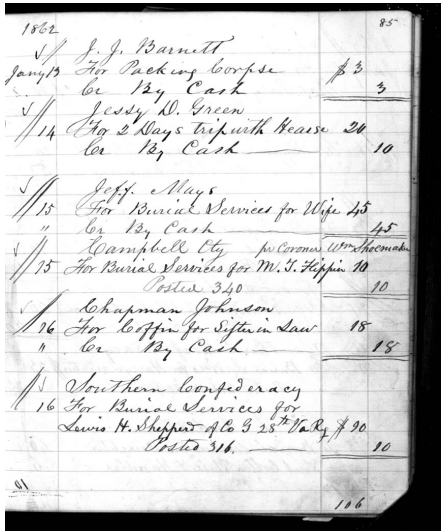 1862 85
J. J. Barnett
Jany 13 For Packing Corpse $3
Cr By Cash 3
Jessy D. Green
14 For 2 Days trip with Hearse 20
Cr By Cash 10
Jeff. Mays
15 For Burial Services for Wife 45
" Cr By Cash 45
Campbell Cty pr Coroner Wm Shoemaker
15 For Burial Services for M. T. Flippin 10
Posted 340 10
Chapman Johnson
16 For Coffin for Sister in Law 18
" Cr By Cash 18
Southern Confederacy
16 For Burial Services for
Lewis H. Shepperd of Co G 28th Va Rg $10
Posted 316. 10
106